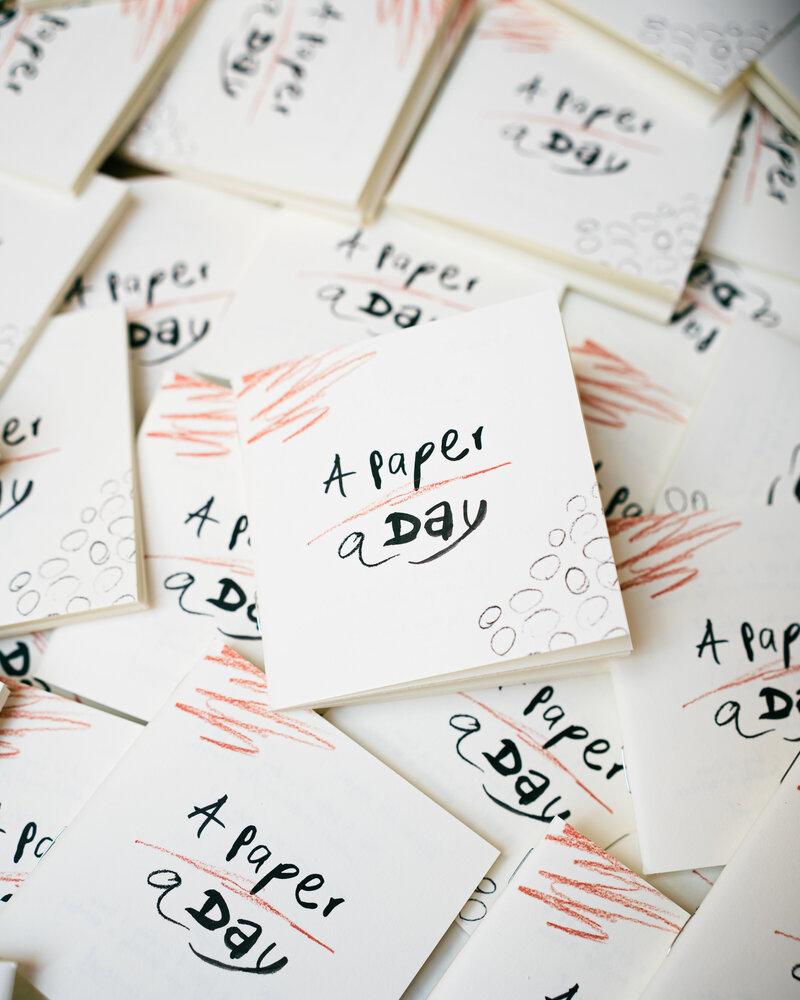 A Paper
a Day
A Paper
a Day
A Paper
a Day
A Paper
a Day
A Paper
a Day
A Paper
a Day
Paper
a Day
A Pap
a Da
A Paper
a Day